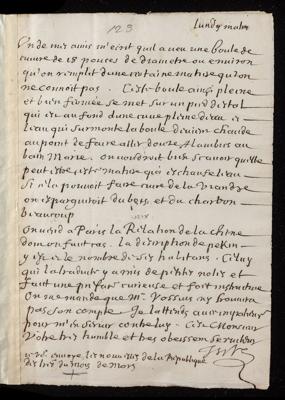 123
Lundy matin
Un de mes amis m'écrit qu'il a veu une boule de
cuivre de 18 pouces de diametre ou environ
qu'on remplit d'une certaine matiere qu'on
ne connoit pas. Cette boule ainsi pleine
et bien fermée se met sur un piedestal
qui est au fond d'une cuve pleine d'eau
l'eau qui surmonte la boule devient chaude
au point de faire aller douze Alambics au
bain Marie. on voudroit bien sçavoir quelle
peut estre cette matiere qui echaufe l'eau
Si elle pouvoit faire cuire de la viande
on espargneroit du bois et du charbon
beaucoup
on vend a Paris la Relation de la chine
dont on fait cas. la description de pekin
y est et le nombre de ses habitans. Celuy
qui l'a traduite y a mis de petites notes et
fait une preface curieuse et fort instructive
On me mande que Mr. Vossius ne trouvera
pas son compte. Je l'attends avec impatience
pour m'en
Vostre tres humble et tres obeissant serviteur
les nouvelles de la Republique
des lettres du mois de Mars